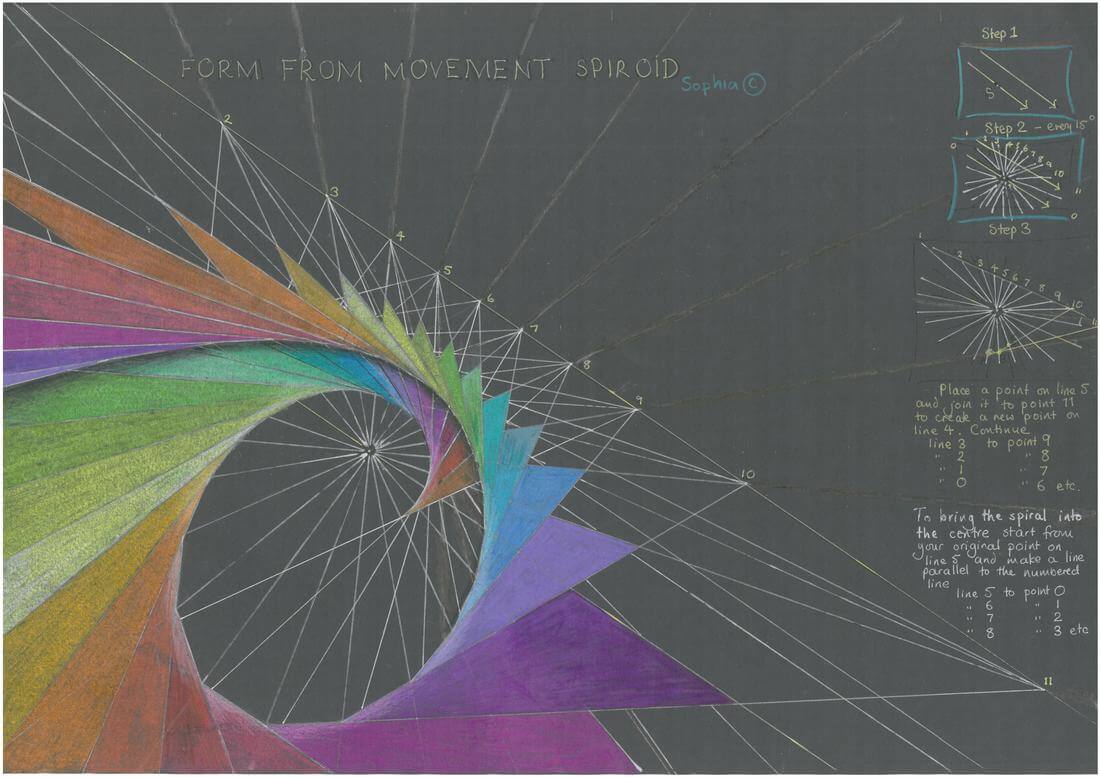 FORM FROM MOVEMENT SPIROID
Sophia ©
2
3
4
5
6
7
8
9
10
11
Step 1
S
Step 2 - every 15°
0 1 2 3 4 5 6 7 8 9 10 11 0
Step 3
1 2 3 4 5 6 7 8 9 10
Place a point on line 5
and join it to point 11
to create a new point on
line 4. Continue
line 3 to point 9
" 2 " 8
" 1 " 7
" 0 " 6 etc.
To bring the spiral into
the centre start from
your original point on
line 5 and make a line
parallel to the numbered
line
line 5 to point 0
" 6 " 1
" 7 " 2
" 8 " 3 etc